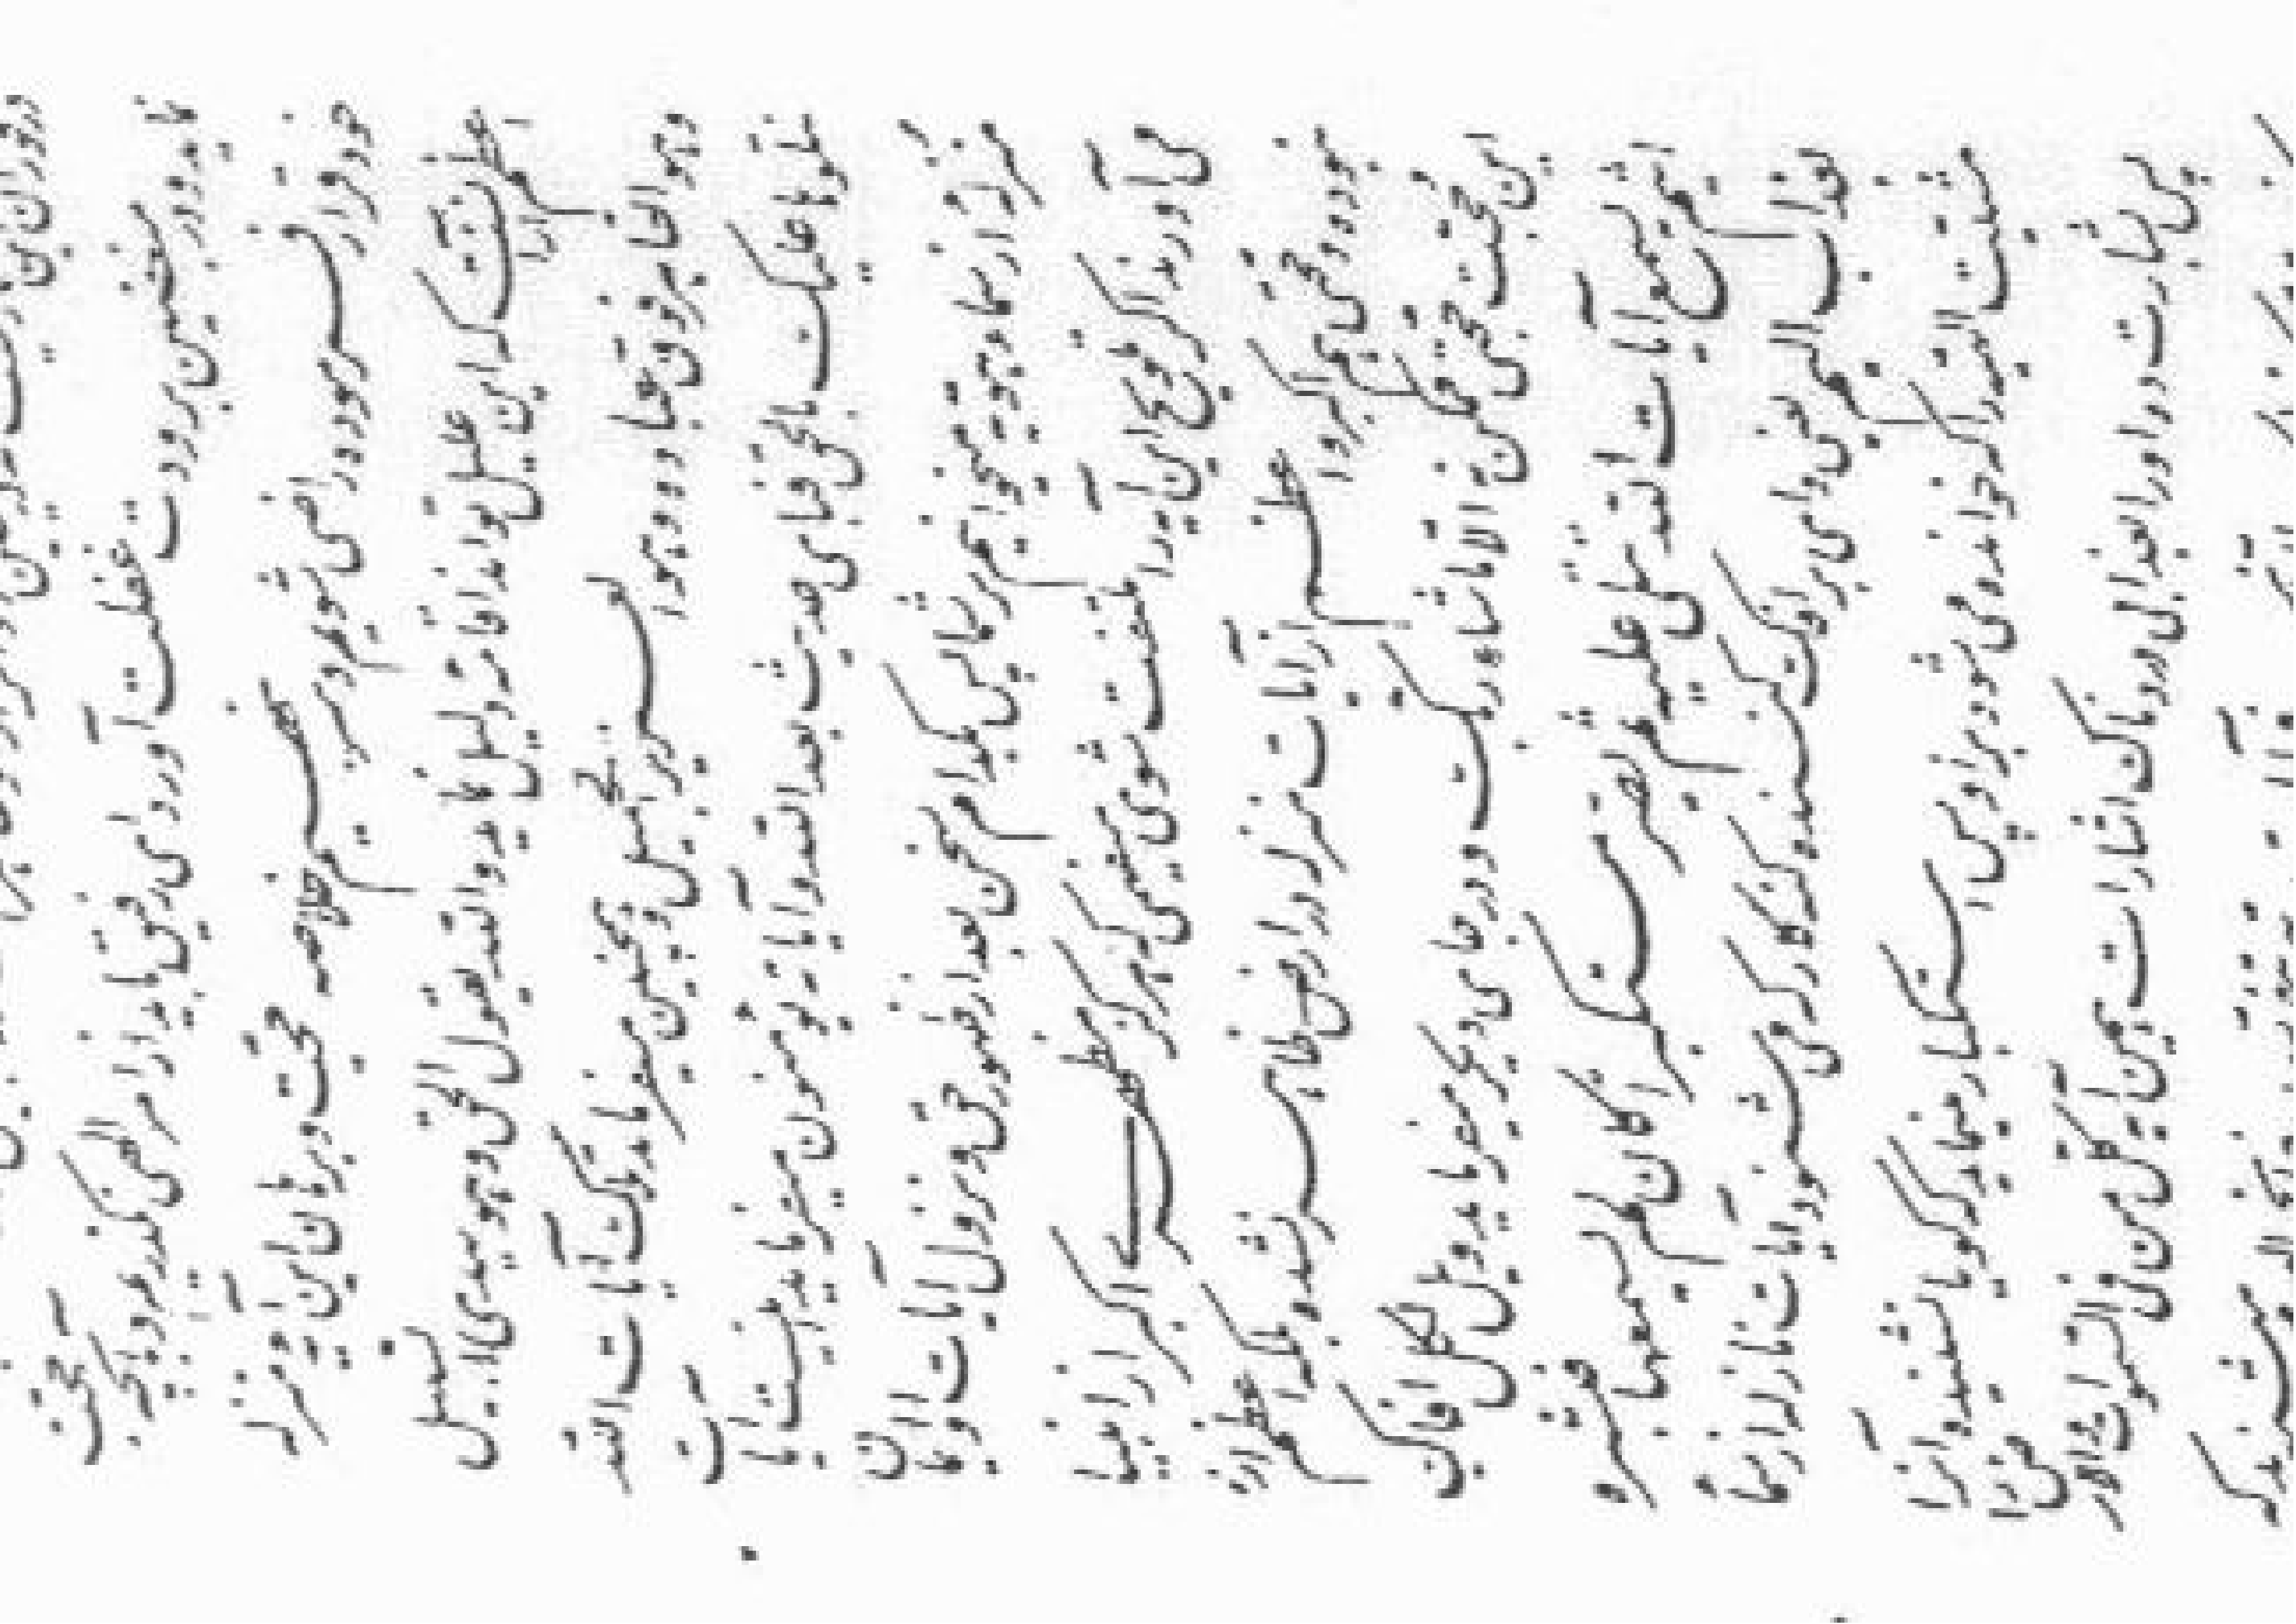 نماید و بر مغرضین برودت غفلت آورد و ای رفیق باید از امر الهی نگذریم و بآنچه حجت
خود قرار فرموده راضی شویم و سر بنهیم خلاصه حجت و برهان این آیه منزله
اعظم از آنست که این علیل تواند اقامه دلیل نماید والله یقول الحق و هو یهدی السبیل
و هو القاهر فوق عباده و هو العزیز الجمیل و همچنین میفرماید تلک آیات الله
نتلوها علیک بالحق فبای حدیث بعد الله و آیاته یؤمنون میفرماید اینست آیات
منزله از سماء هویه میخوانیم بر شما پس بکدام سخن بعد از ظهور حق و نزول آیات او ایمان
می آورند اگر تلویح این آیه را ملتفت شوی میفهمی که هرگز مظهری اکبر از انبیا
نبوده و حجتی هم اکبر و اعظم از آیات منزله در ارض ظاهر نشده بلکه اعظم از
این حجت حجتی ممکن نه الا ما شاء ربک و در جای دیگر میفرماید ویل لکل افاک
اثیم یسمع آیات الله تتلی علیه ثم یصر مستکبرا کان لم یسمعها فبشره
بعذاب الیم یعنی وای بر افک کننده گنه کار که میشنود آیات نازله از سماء
مشیت الهیه را که خوانده میشود بر او پس استکبار مینماید گویا نشنیده آنرا
پس بشارت ده او را بعذابی دردناک اشارات همین آیه کل من فی السموات والارض را